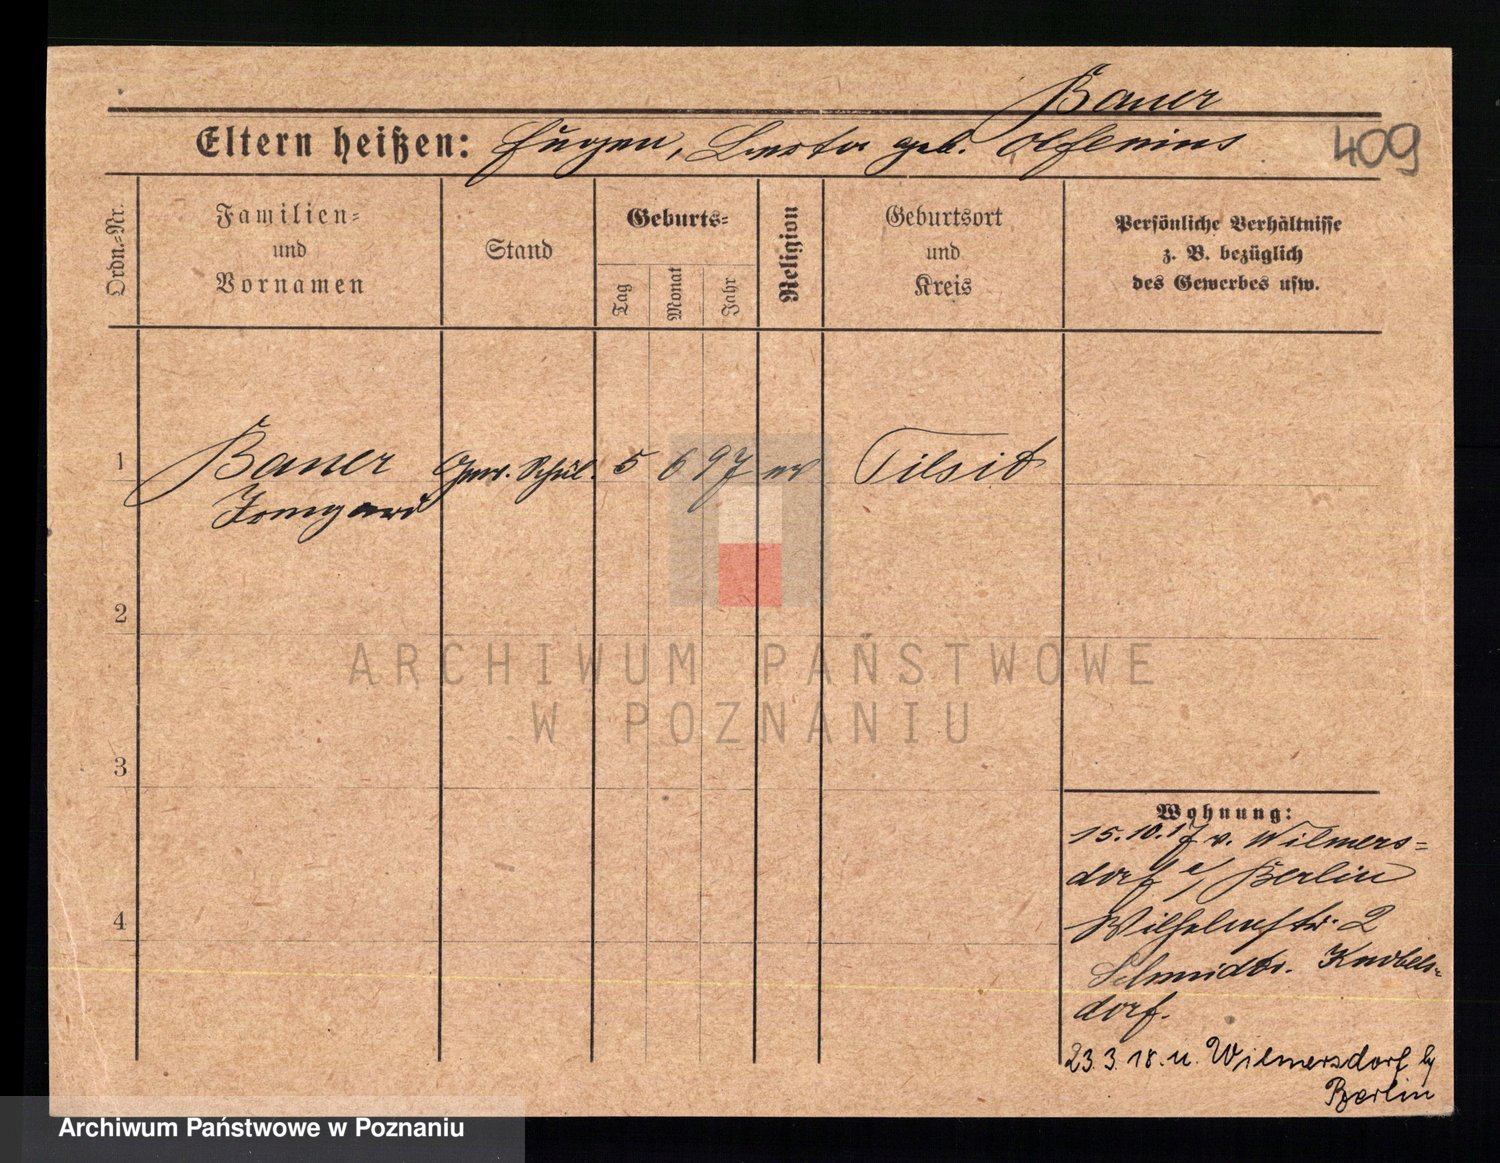 Bauer
Eltern heißen: Eugen, Berta geb. Olfenius
409
Ordn.-Nr.
Familien-
und
Vornamen
Stand
Geburts-
Tag
Monat
Jahr
Religion
Geburtsort
und
Kreis
Persönliche Verhältnisse
z. B. bezüglich
des Gewerbes usw.
1
Bauer
Irmgard
Gew. Schül.
5
6
97
ev
Tilsit
2
3
4
ARCHIWUM PAŃSTWOWE
W POZNANIU
Wohnung:
15.10.17 v. Wilmers-
dorf b/ Berlin
Wilhelmstr. 2
Knobels-
dorf.
23.3.18. n. Wilmersdorf b/
Berlin
Archiwum Państwowe w Poznaniu